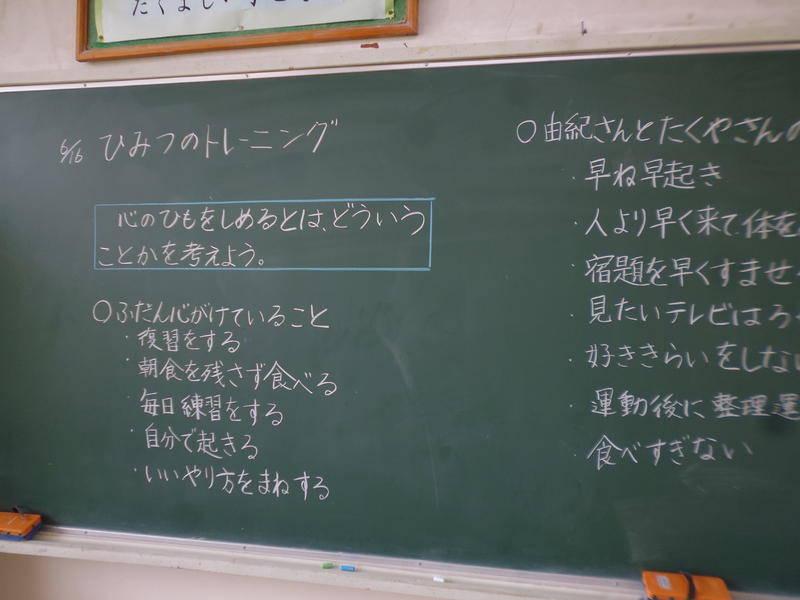 6/16 ひみつのトレーニング
心のひもをしめるとは、どういう
ことかを考えよう。
○ふだん心がけていること
・復習をする
・朝食を残さず食べる
・毎日練習をする
・自分で起きる
・いいやり方をまねする
○由紀さんとたくやさんの
・早ね早起き
・人より早く来て、体を
・宿題を早くすませ
・見たいテレビは
・好ききらいをしない
・運動後に整理運
・食べすぎない